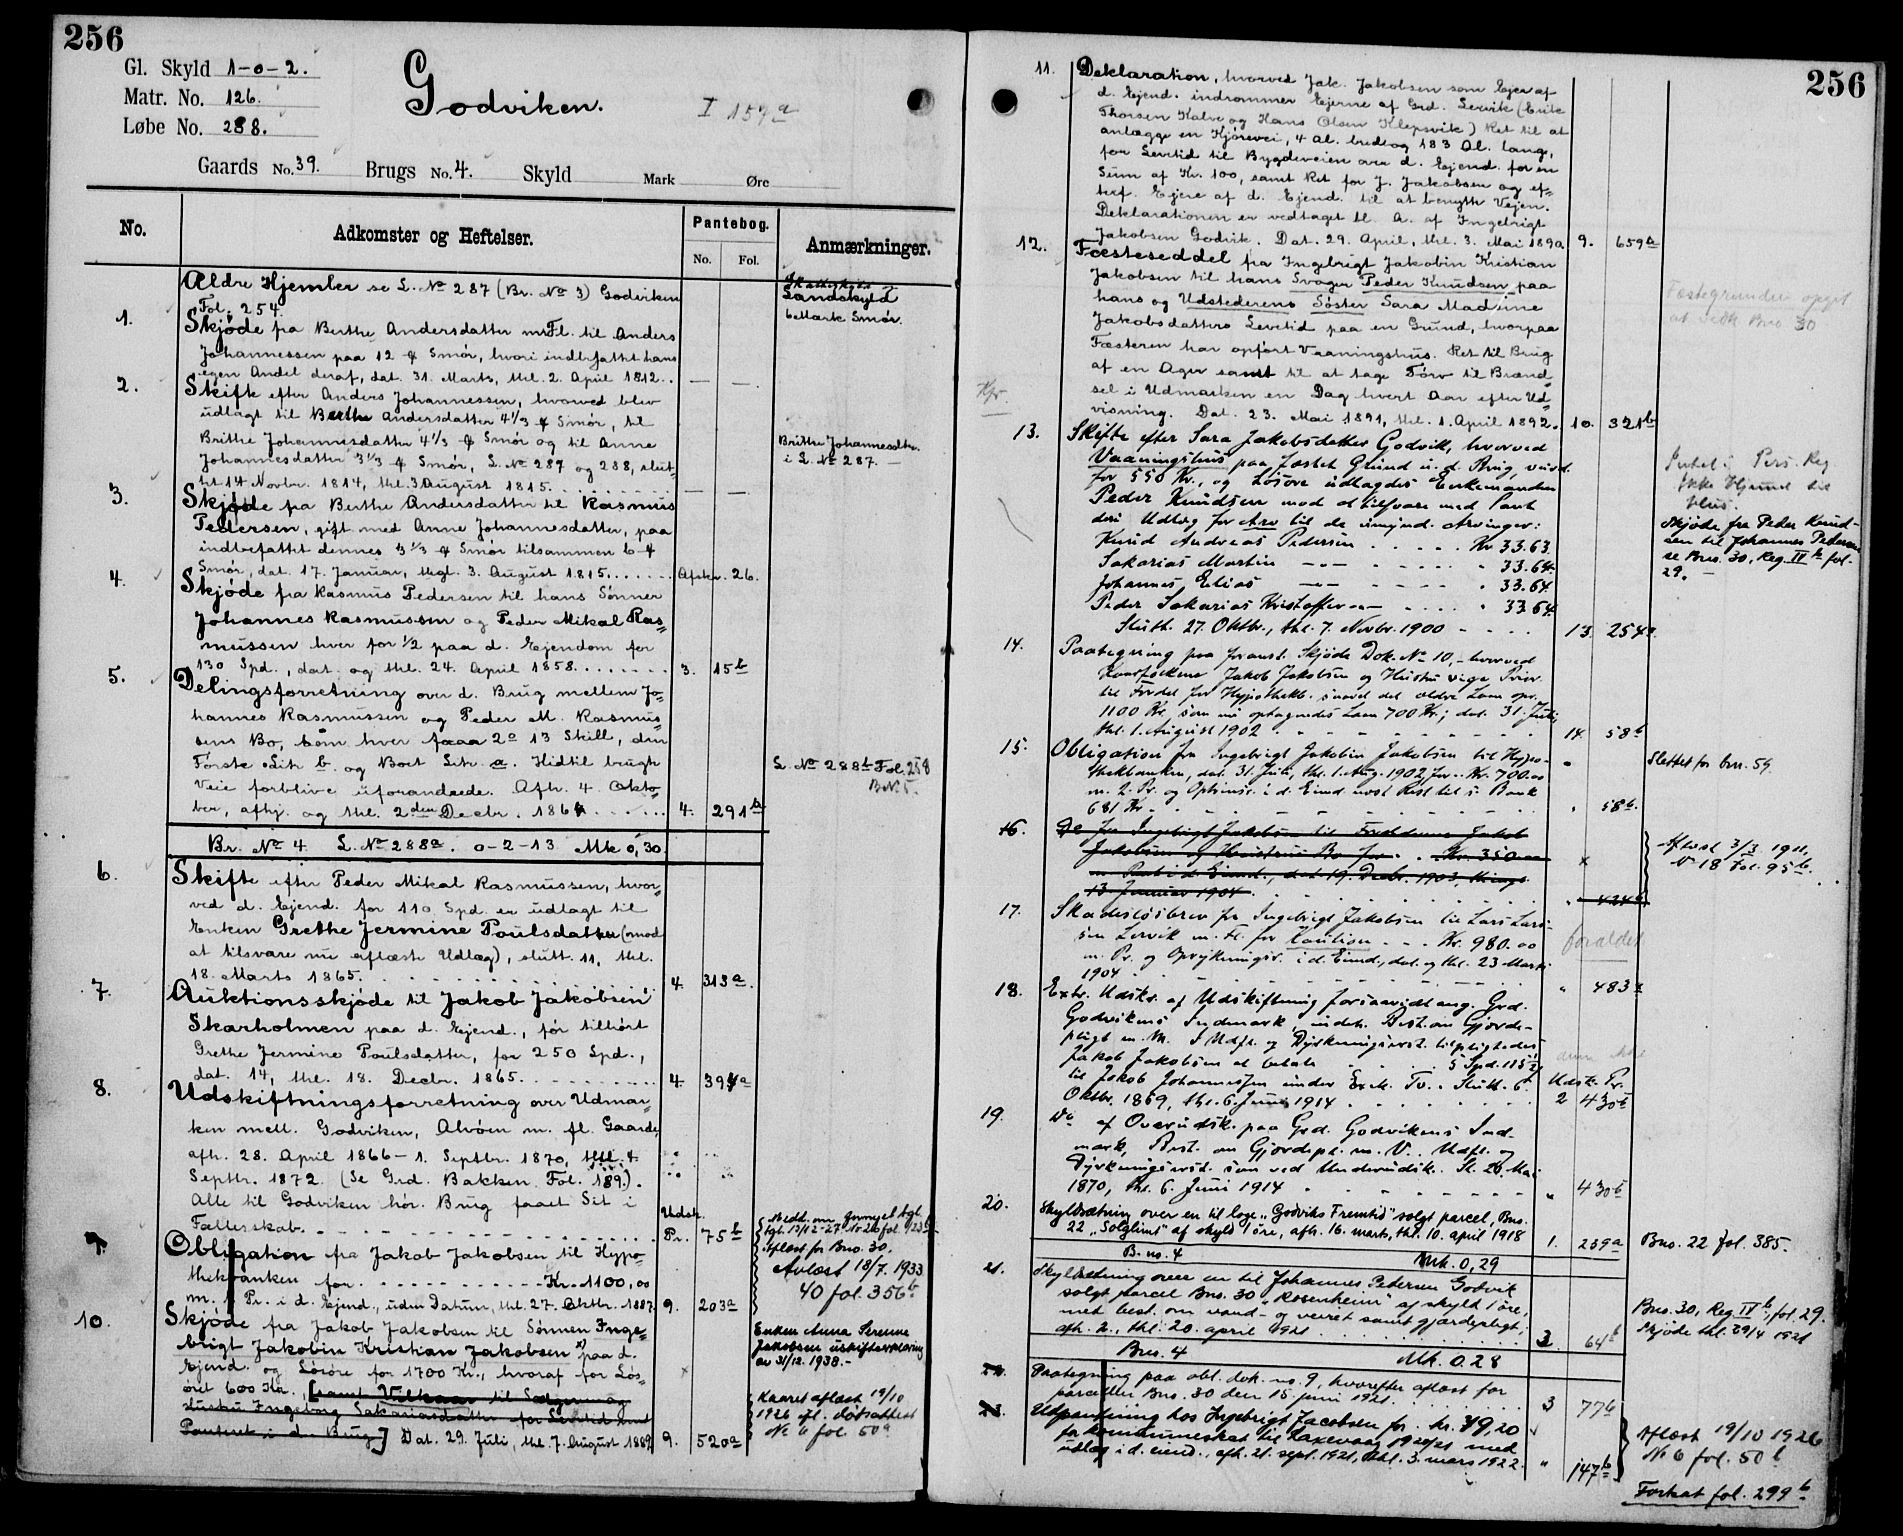 256
Gl. Skyld 1-0-2.
Matr. No. 126.
Løbe No. 288.
Godviken.
I 159a
Gaards No. 39. Brugs No. 4. Skyld Mark Øre
No. Adkomster og Heftelser. Pantebog. Anmærkninger.
No. Fol.
Ældre Hjemler se L. No 287 (Br. No 3) Godviken
Fol. 254.
Landskyld
6 Mark Smør.
1. Skjøde fra Berthe Andersdatter m. Fl. til Anders
Johannessen paa 12 Smør, hvori indbefattet hans
egen Andel deraf, dat. 31. Marts, thl. 2. April 1812. . — —
2. Skifte efter Anders Johannessen, hvorved blev
udlagt til Berthe Andersdatter 4 1/3 Smør, til
Brithe Johannesdatter 4 1/3 Smør og til Anne
Johannesdatter 3 1/3 Smør, L. No 287 og 288, slut-
tet 14 Novbr. 1814, thl. 3 August 1815. — —
Brithe Johannesdtr.
i L. No 287. —
3. Skjøde fra Berthe Andersdatter til Rasmus
Pedersen, gift med Anne Johannesdatter, paa
indbefattet dennes 3 1/3 Smør tilsammen 6
Smør, dat. 17. Januar, thgl. 3. August 1815. . . . . . Afskr. 26.
4. Skjøde fra Rasmus Pedersen til hans Sønner
Johannes Rasmussen og Peder Mikal Ras-
mussen hver for 1/2 paa d. Ejendom for
130 Spd., dat. og thl. 24. April 1858. . . . . . . 3. 15b
5. Delingsforretning over d. Brug mellem Jo-
hannes Rasmussen og Peder M. Rasmus-
sens Bo, som hver faaa 2o 13 Skill, den
Første Litr b. og Boet Litr. a. Hidtil brugte
Veie forblive uforandrede. Afh. 4. Okto-
ber, afhj. og thl. 2den Decbr. 1864 . . . . . 4. 291b
L. No 288b Fol. 258
B No 5.
Br. No 4 L. No 288a. 0-2-13 Mk 0,30.
6. Skifte efter Peder Mikal Rasmussen, hvor-
ved d. Ejend. for 110 Spd. er udlagt til
Enken Grethe Jermine Poulsdatter (mod
at tilsvare nu aflæste Udlæg), slutt. 11, thl.
18. Marts 1865. 4. 313a
7. Auktionsskjøde til Jakob Jakobsen
Skarholmen paa d. Ejend., før tilhørt
Grethe Jermine Poulsdatter, for 250 Spd.,
dat. 14, thl. 18. Decbr. 1865. 4. 394a
8. Udskiftningsforretning over Udmar-
ken mell. Godviken, Alvøen m. fl. Gaarde,
afh. 28. April 1866 — 1. Septbr. 1870, thl. 4.
Septbr. 1872. (Se Grd. Bakken Fol. 189.).
Alle til Godviken hør. Brug faaet Sit i
Fællesskab. Udsk. Pr. 75b
9. Obligation fra Jakob Jakobsen til Hypo-
thekbanken for Kr. 1100,00
m. 1 Pr. i d. Ejend., uden Datum, thl. 27. Oktbr. 1887. 9. 203a
Aflæst fr Bno. 30.
Avlæst 18/7. 1933
40 fol. 356b
10. Skjøde fra Jakob Jakobsen til Sønnen Inge-
brigt Jakobin Kristian Jakobsen x) paa d.
Ejend. og Løsøre for 1700 Kr., hvoraf for Løs-
øret 600 Kr., [samt Vilkaar til Sælgeren og
Hustru Ingeborg Sakariasdatter for Levetid med
Panteret i d. Brug] Dat. 29. Juli, thl. 7. August 1889. 9. 520a
Enken Anna Serenne
Jakobsen uskifteerklæring
av 31/12. 1938. –
Kaaret aflæst 19/10
1926 efl. dødsattest
No 6 fol. 50a
256
11. Deklaration, hvorved Jak. Jakobsen som Ejer af
d. Ejend. indrømmer Ejerne af Grd. Lervik (Erik
Thorsen Kalve og Hans Olsen Klepsvik) Ret til at
anlægge en Kjørevei, 4 Al. bred og 183 Al. lang,
for Levetid til Bygdeveien over d. Ejend. for en
Sum af Kr. 100, samt Ret for J. Jakobsen og ef-
terf. Ejere af d. Ejend. til at benytte Vejen.
Deklarationen er vedtaget bl. A. af Ingebrigt
Jakobsen Godvik. Dat. 29. April, thl. 3. Mai 1890. 9. 659b
12. Fæsteseddel fra Ingebrigt Jakobin Kristian
Jakobsen til hans Svoger Peder Knudsen paa
hans og Udstederens Søster Sara Madine
Jakobsdatters Levetid paa en Grund, hvorpaa
Fæsteren har opført Vaaningshus. Ret til Brug
af en Ager samt til at tage Tørv til Brænd-
sel i Udmarken en Dag hvert Aar efter Ud-
visning. Dat. 23. Mai 1891, thl. 1. April 1892. 10. 321b
Fæstegrunden opgit
Bno 30
13. Skifte efter Sara Jakobsdatter Godvik, hvorved
Vaaningshus paa fæstet Grund u. d. Brug, vurd.
for 550 Kr., og Løsøre udlagdes Enkemanden
Peder Knudsen mod at tilsvare med Pant
deri Udlæg for Arv til de umynd. Arvinger:
Knud Andreas Pedersen . . . . . Kr 33.63.
Sakarias Martin —„— . . . . . " 33.64.
Johannes Elias —„— . . . . " 33.64.
Peder Sakarias Kristoffer —„— . . . . " 33.64.
Slutt. 27. Oktbr., thl. 7. Novbr. 1900 13. 254a.
Pers. Reg
Ikke Hjemmel til
Hus.
Skjøde fra Peder Knud-
sen til Johannes Pedersen
se Bno. 30. Reg. IIb fol.
29. —
14. Paategning paa foranst. Skjøde Dok. No 10, – hvorved
Kaarfolkene Jakob Jakobsen og Hustru vige Prior.
til Fordel for Hypothekb. saavel det ældre Laan opr.
1100 Kr. som nu optagendes Laan 700 Kr.; dat. 31. Juli,
thl. 1. August 1902 14. 58b
15. Obligation fra Ingebrigt Jakobin Jakobsen til Hypo-
thekbanken, dat. 31. Juli, thl. 1. Aug. 1902, for Kr. 700.00
m. 2. Pr. og Oprinsr. i d. Eiend. mod Rest til s. Bank
681 Kr. " 58b.
Slettet for bnr. 59.
16. Do fra Ingebrigt Jakobsen til Forældrene Jakob
Jakobsen og Hustrus Bo for . . Kr. 350.00
m. Pant i d. Eiend., dat. 19. Decbr. 1903, thinglt
13. Januar 1904 " 424b
Aflæst 3/3 1911,
No 18 Fol. 95b.
17. Skadesløsbrev fra Ingebrigt Jakobsen til Lars Lars-
sen Lervik m. Fl. for Kaution . . . Kr. 980.00
m. Pr. og Oprykningsr. i d. Eiend., dat. og thl. 23 Marts
1904 " 483a
foraldet
18. Extr. Udskr. af Udskiftning forsaavidt ang. Grd.
Godvikens Indmark, indeh. Best. om Gjerde-
pligt m. M. I Udfl. og Dyrkningserst. tilpligtedes
Jakob Jakobsen at betale . . . . . 5 Spd. 115½
til Jakob Johannessen under Exek. Tv. Slutt. 6.
Oktbr. 1869, thl. 6. Juni 1914 Udsk. Pr. 2 430b
19. Do af Overudsk. paa Grd. Godvikens Ind-
mark, Best. om Gjerdepl. m. V. Udfl. og
Dyrkningserst. som ved Underudsk. Sl. 20. Mai
1870, thl. 6. Juni 1914 " 430b
20. Skyldsætning over en til loge „Godviks Fremtid" solgt parcel, Bno.
22 „Solglimt" af skyld 1 øre, afh. 16. marts, thl. 10. april 1918 1. 259a
Bno. 22 fol. 385.
B. no. 4 Mrk. 0,29
21. Skyldsætning over en til Johannes Pedersen Godvik
solgt parcel Bno. 30 „Rosenheim" af skyld 1 øre,
med best. om vand- og veiret samt gjærdepligt,
afh. 2., thl. 20. april 1921 3. 64b
Bno. 30, Reg. IIb, fol. 29.
Skjøde thl. 29/4 1921
Bno. 4 Mk. 0.28
22. Paategning paa obl. dok. no. 9, hvorefter aflæst for
parcellen Bno. 30 den 15. juni 1921. 3 77b
23. Utpantning hos Ingebrigt Jacobsen for kr. 79,20
for kommuneskat til Laxevaag 1920/21 med
utlæg i d. eiend., afh. 21. sept. 1921, thl. 3. mars 1922. " 147b
Aflæst 19/10 1926
No 6 fol. 50b
Fortsat fol. 299b